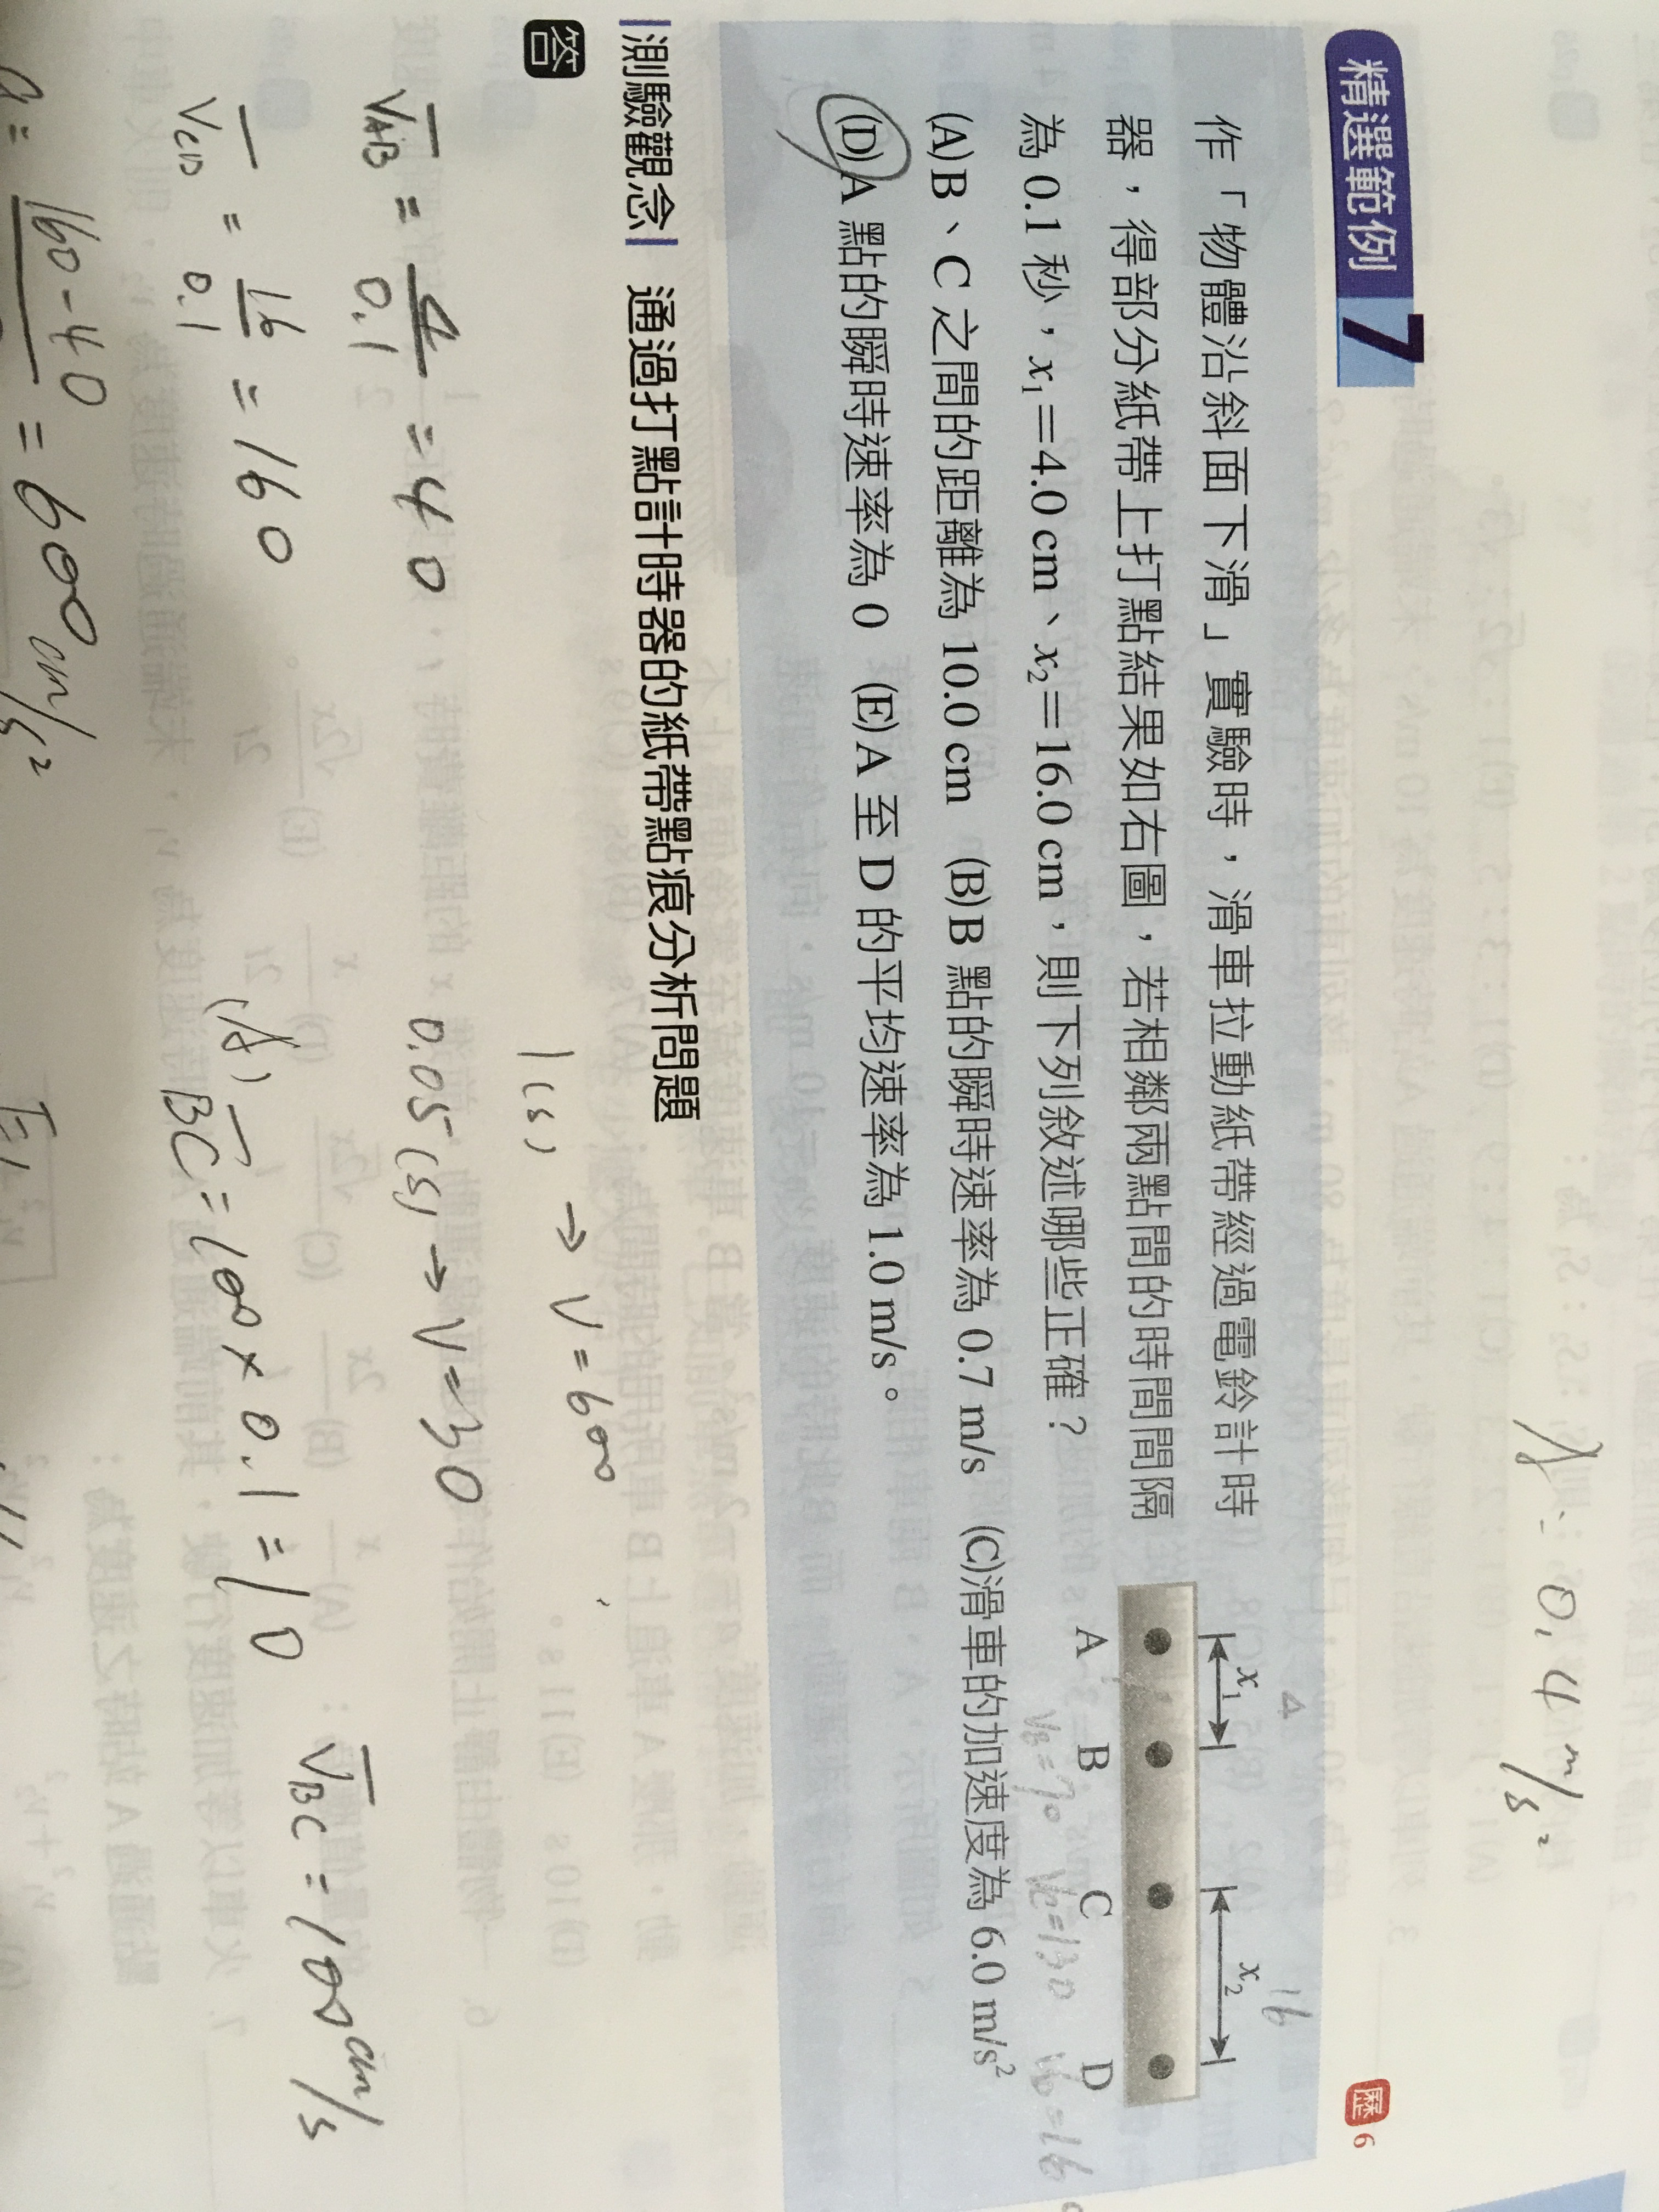 精選範例 7
歷 6
作「物體沿斜面下滑」實驗時，滑車拉動紙帶經過電鈴計時
器，得部分紙帶上打點結果如右圖，若相鄰兩點間的時間間隔
為 0.1 秒，x₁＝4.0 cm、x₂＝16.0 cm，則下列敘述哪些正確？
(A)B、C 之間的距離為 10.0 cm (B)B 點的瞬時速率為 0.7 m/s (C)滑車的加速度為 6.0 m/s²
(D)A 點的瞬時速率為 0 (E)A 至 D 的平均速率為 1.0 m/s。
4
16
x₁
x₂
A B C D
V_B=70 V_C=130
0.4 m/s²
測驗觀念 通過打點計時器的紙帶點痕分析問題
答
1(s) → V=600
V_AB = 4/0.1 = 40
0.05(s) → V=30
V_CD = 16/0.1 = 160
V_BC = 100 cm/s
(A) BC = 100 × 0.1 = 10
a = 160-40 = 600 cm/s²